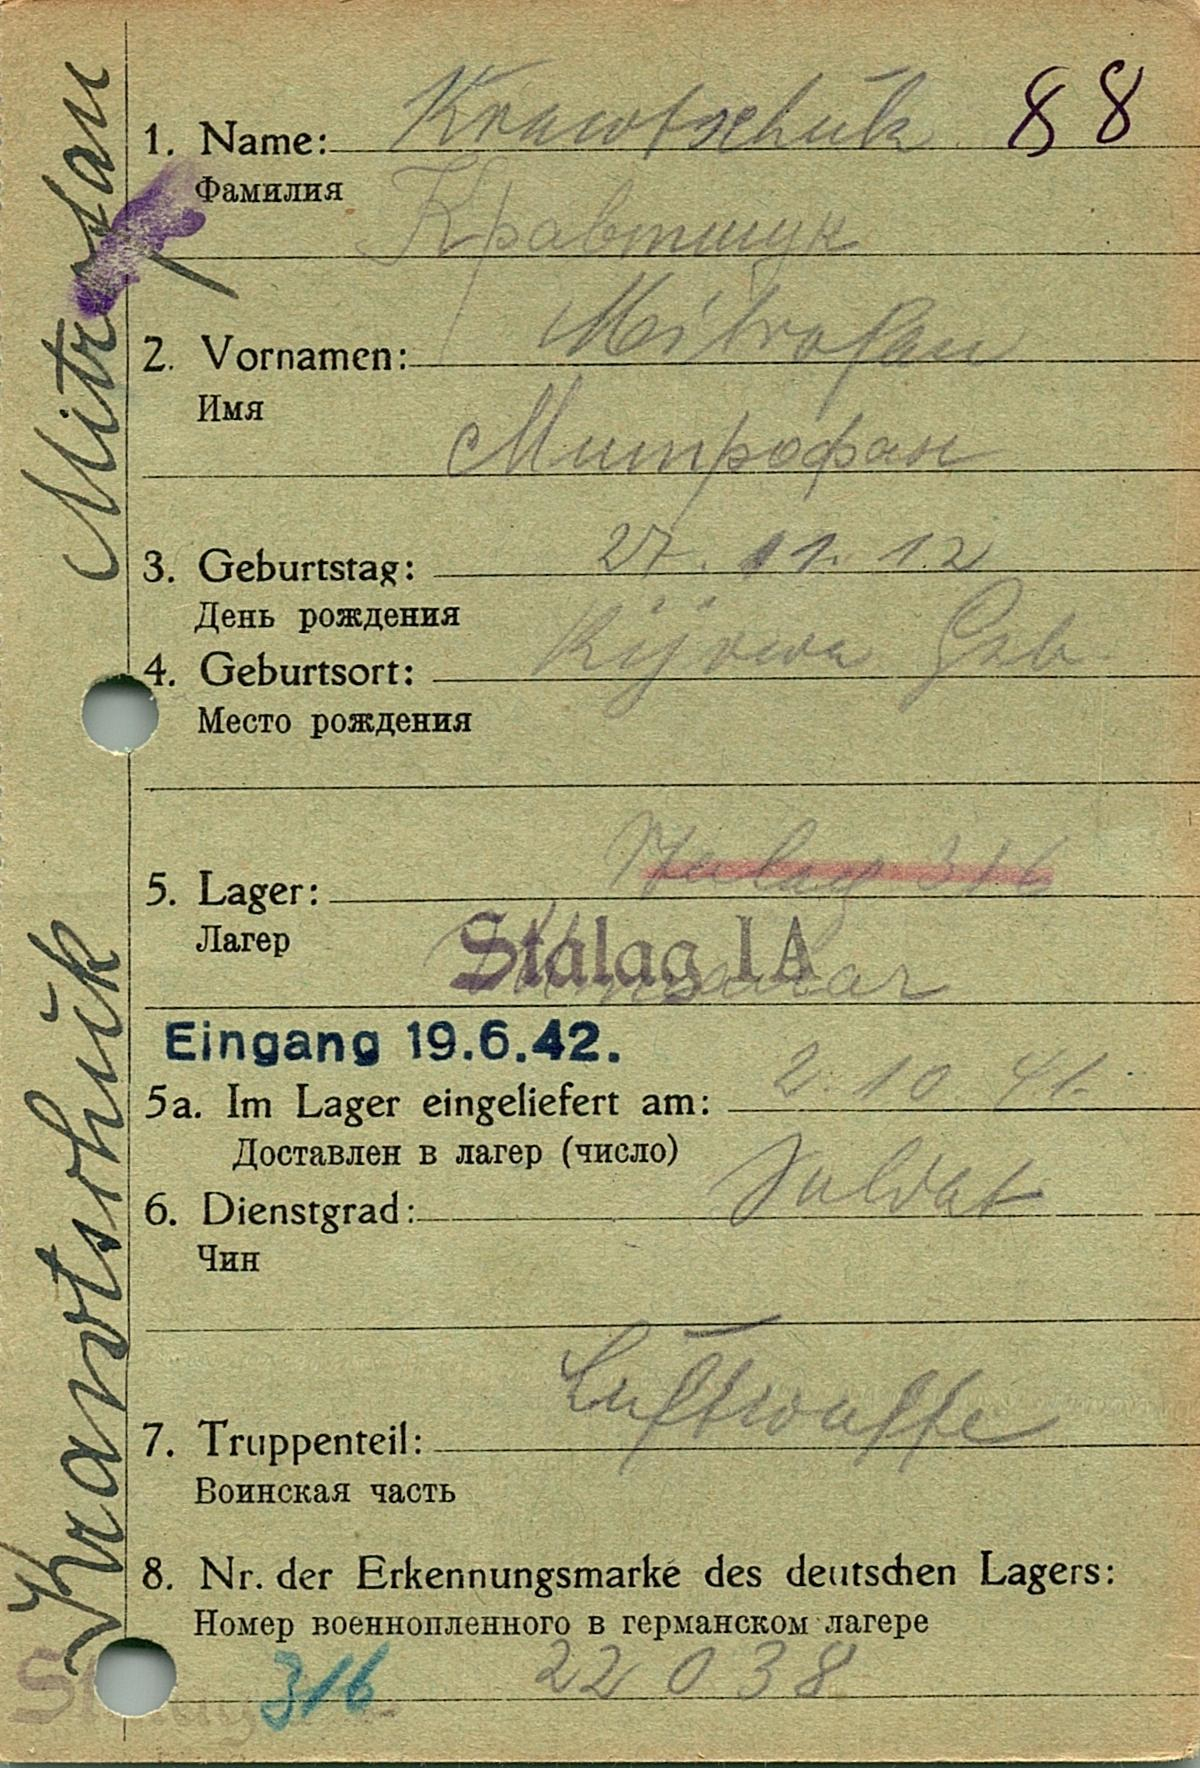 Krawtschuk Mitrofan
88
1. Name: Krawtschuk
Фамилия
Кравтшук
2. Vornamen: Mitrofan
Имя
Митрофан
3. Geburtstag: 27. 11. 12
День рождения
4. Geburtsort: Kijowa Geb.
Место рождения
5. Lager: Stalag 316
Лагер
Stalag IA
Eingang 19.6.42.
5a. Im Lager eingeliefert am: 2. 10 41.
Доставлен в лагер (число)
6. Dienstgrad: Soldat
Чин
7. Truppenteil: Luftwaffe
Воинская часть
8. Nr. der Erkennungsmarke des deutschen Lagers:
Номер военнопленного в германском лагере
22038
Stalag 316